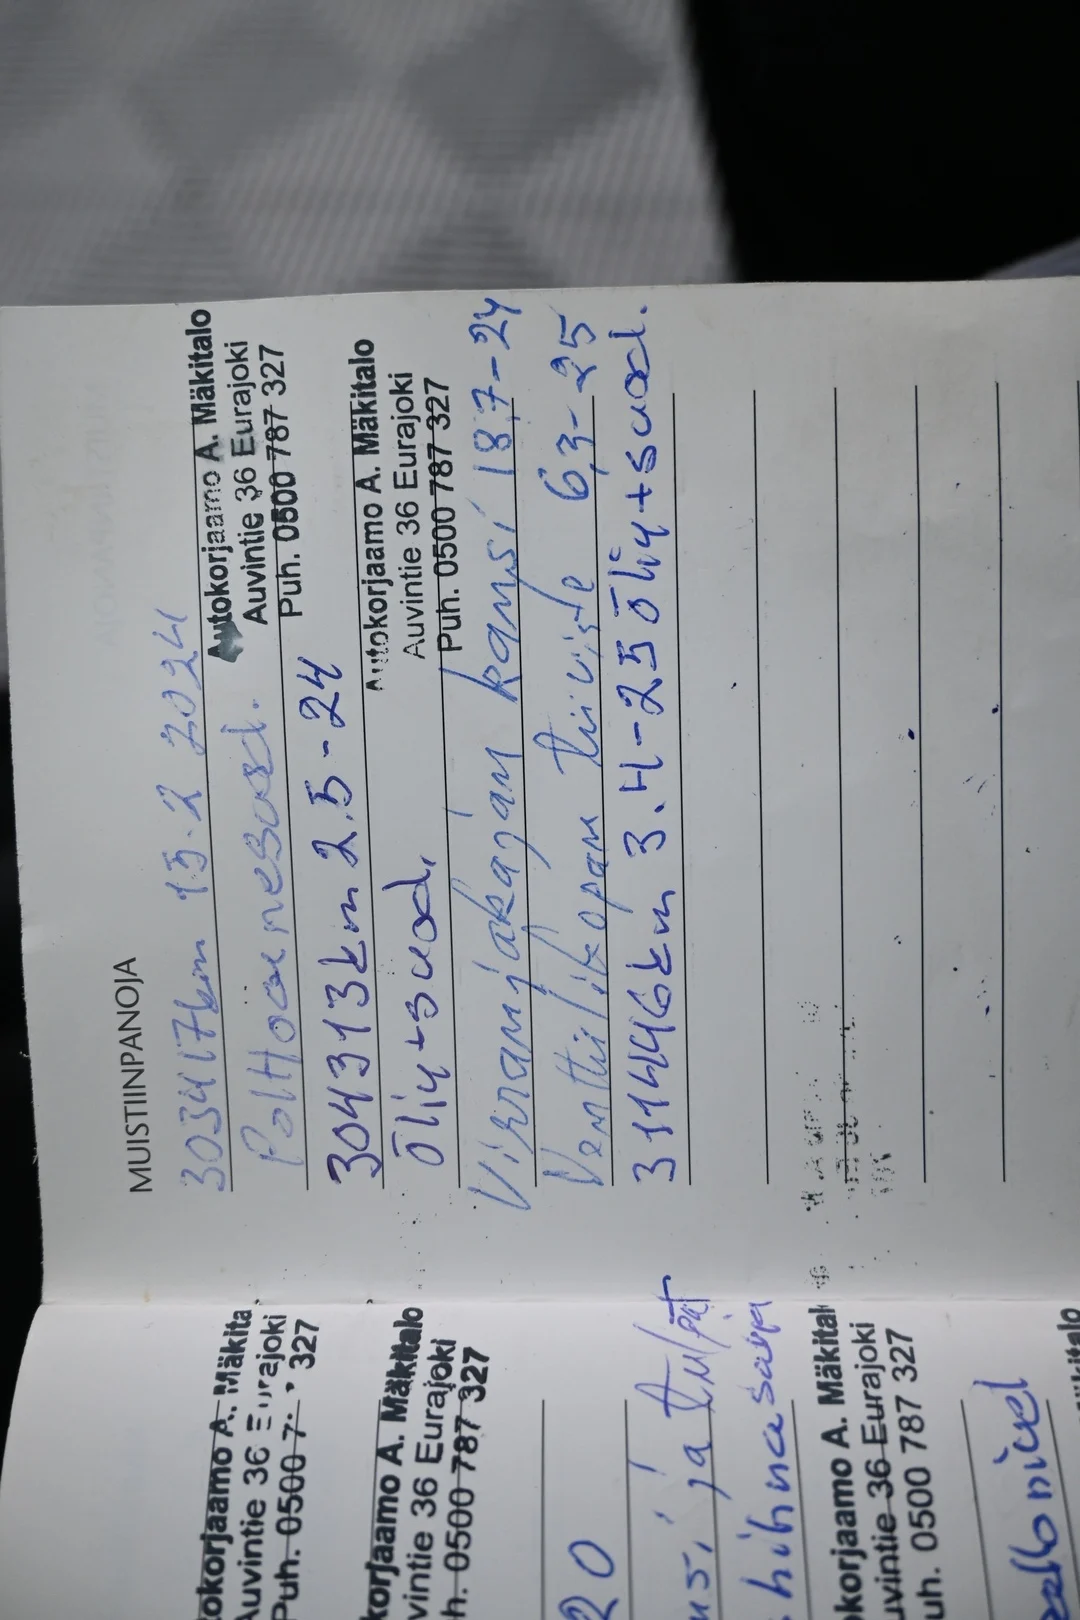 MUISTIINPANOJA
303417km 15.2 2024
Autokorjaamo A. Mäkitalo
Auvintie 36 Eurajoki
Puh. 0500 787 327
Polttoainesuod.
304313km 2.5-24
Autokorjaamo A. Mäkitalo
Auvintie 36 Eurajoki
Puh. 0500 787 327
öljy+suod.
Virranjakajan kansi 18.7-24
Venttiilikopan tiiviste 6,3-25
311446km 3.4-25 öljy+suod.
tokorjaamo A. Mäkita
Auvintie 36 Eurajoki
Puh. 0500 7 327
korjaamo A. Mäkitalo
vintie 36 Eurajoki
h. 0500 787 327
20
nsi ja tulpat
hihnasarja
korjaamo A. Mäkital
uvintie 36 Eurajoki
uh. 0500 787 327